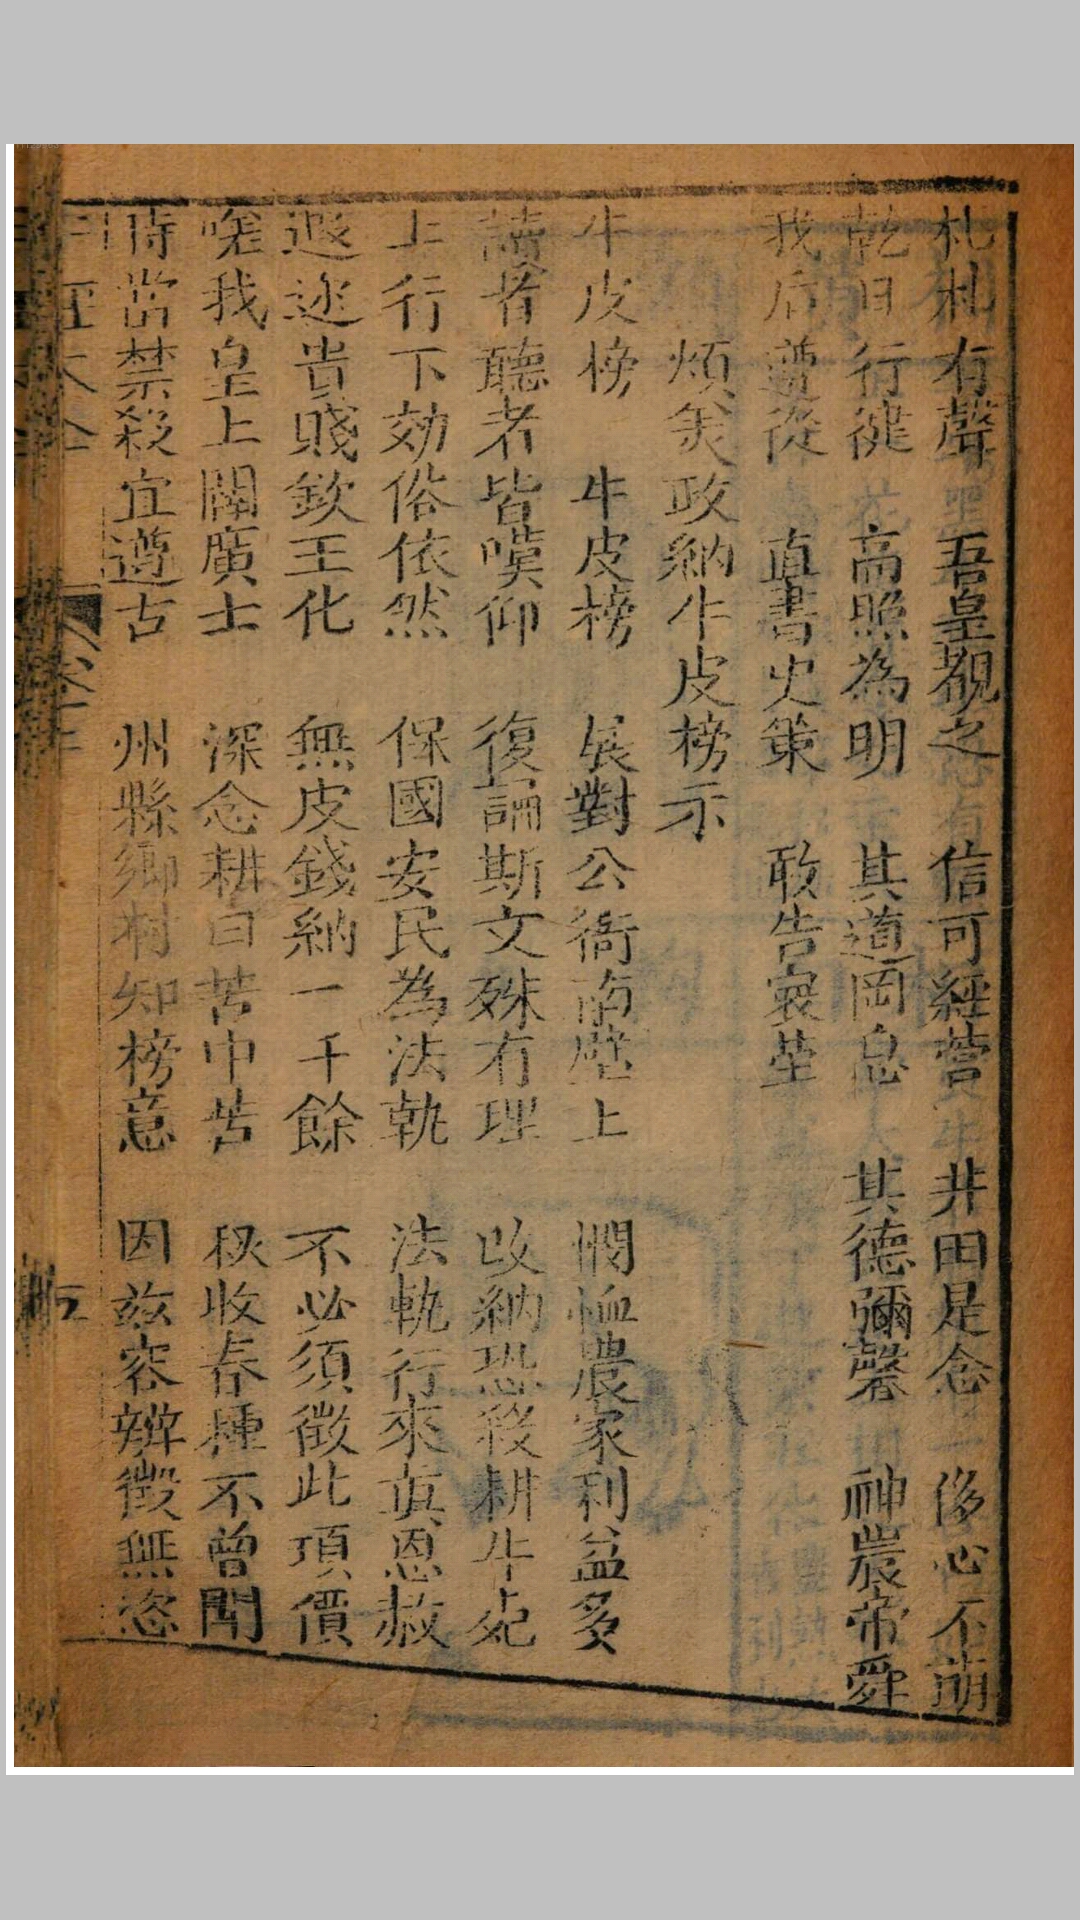 札札有聲　吾皇覩之　信可經營　井田是念　侈心不萌
乾日行健　高照為明　其道罔息　其德彌馨　神農帝舜
我后遵從　直書史策　敢告
煩矣政納牛皮榜示
牛皮榜　牛皮榜　展對公衙南壁上　憫恤農家利益多
讀者聽者皆嘆仰　復論斯文殊有理　改納恐殺耕牛
上行下効俗依然　保國安民為法軌　法軌行來真恩赦
遐迩貴賤欽王化　無皮錢納一千餘　不必須徵此項價
我皇上開廣士　深念耕曰苦中苦　秋收春種不曾閗
時當禁殺宜遵古　州縣鄉村知榜意　因茲容辨徵無恣